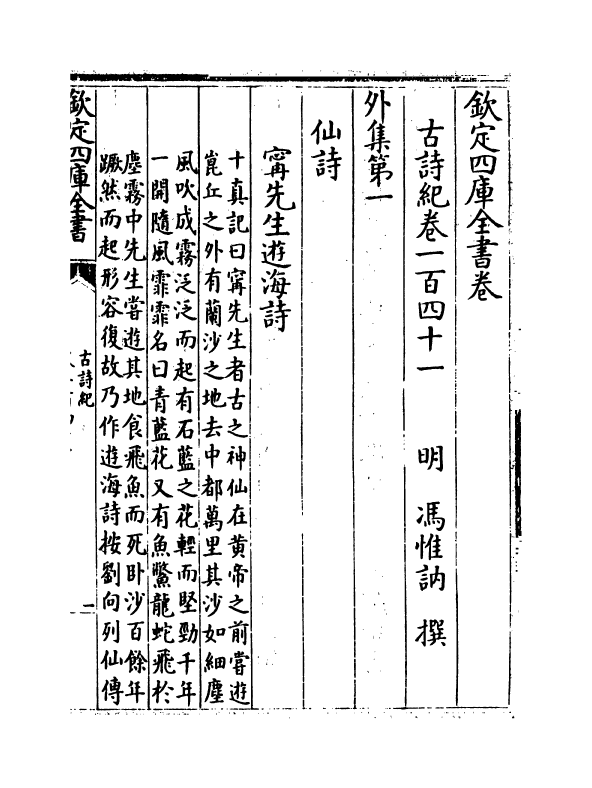 欽定四庫全書卷
古詩紀卷一百四十一　明　馮惟訥　撰
外集第一
仙詩
甯先生遊海詩
十真記曰甯先生者古之神仙在黄帝之前嘗遊
崑丘之外有蘭沙之地去中都萬里其沙如細塵
風吹成霧泛泛而起有石藍之花輕而堅勁千年
一開隨風霏霏名曰青藍花又有魚鱉龍蛇飛於
塵霧中先生嘗遊其地食飛魚而死卧沙百餘年
蹶然而起形容復故乃作遊海詩按劉向列仙傳
欽定四庫全書
古詩紀
一